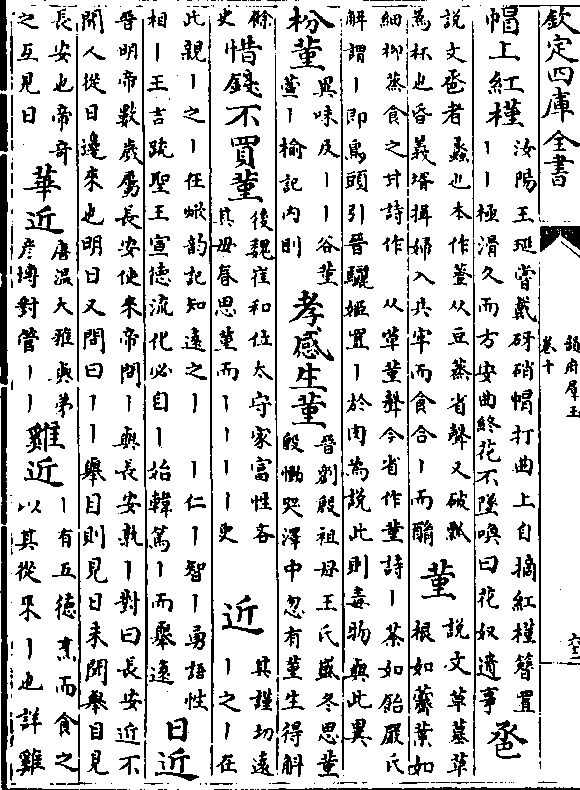 欽定四庫全書
韻府羣玉
卷十
帽上紅槿 汝陽王璡嘗戴砑硝帽打曲上自摘紅槿簪置
丨丨極滑久而方安曲終花不墜喚曰花奴遺事 巹
說文巹者蠡也本作䔖从豆蒸省聲又破瓢
為杯也昏義壻揖婦入共牢而食合丨而酳 菫 說文草菫草
根如薺葉如
細柳蒸食之甘詩作 从草菫聲今省作菫詩丨荼如飴嚴氏
解謂丨即烏頭引晉驪姬寘丨於肉為說此則毒物與此異
枌菫 異味及丨丨谷菫
菫丨榆記内則 孝感生菫 晉劉殷祖母王氏盛冬思菫
殷慟哭澤中忽有菫生得斛
餘
史 惜錢不買菫 後魏崔和位太守家富性吝
其母春思菫而丨丨丨丨史 近 其謹切遠
丨之丨在
此親丨之丨任㷉韵記知遠之丨 丨仁丨智丨勇語性
相丨王吉疏聖王宣德流化必自丨始韓篤丨而舉遠 日近
晉明帝數歲屬長安使來帝問丨與長安孰丨對曰長安近不
聞人從日邊來也明日又問曰丨丨舉目則見日未聞舉目見
長安也帝奇
之互見日 華近 唐溫大雅與弟
彦博對管丨丨 雞近 丨有五德烹而食之
以其從來丨也詳雞